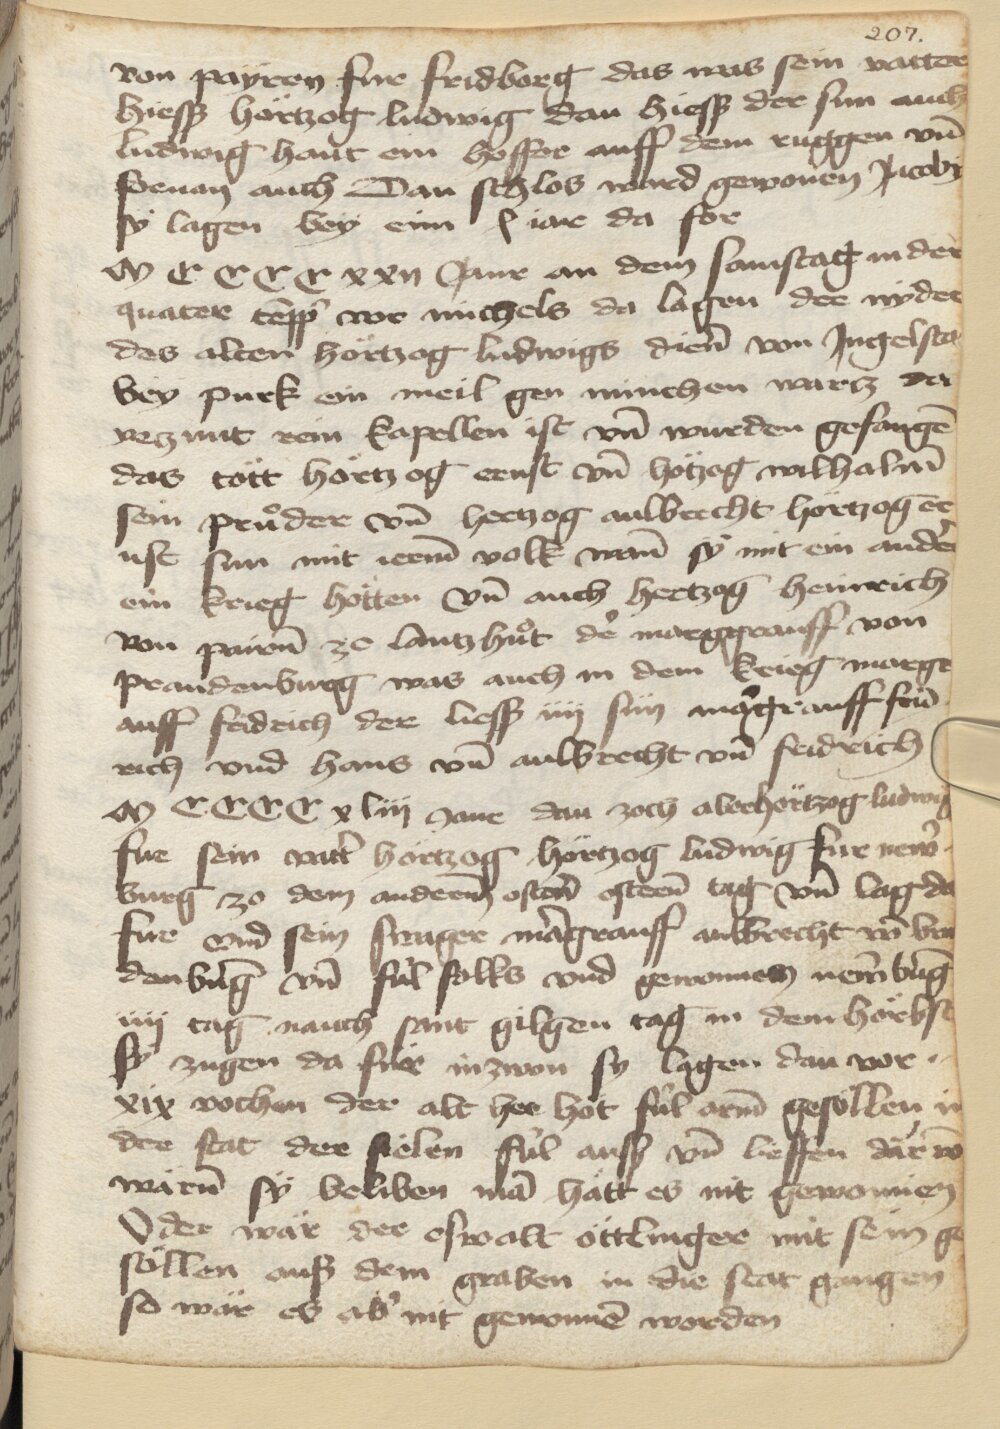 207.
von payren fur fridborg das was sein vatter
hiesß hörtzog ludwig dan hiesß der sun auch
ludwig haut ein hoffor auff dem ruggen vn̄
fornan auch Dan schlos ward gewonen Jacoby
sy lagen bey eim ½ iar da for
M C C C C xxii Jaur an dem samstag in der
quater temp̄ vor michels da lagen der nyder
des alten hörtzog ludwigs dien̄ von Ingelsta
bey purk ein meil gen minchen wartz da
yetzunt rein kapellen ist vn̄ wurden gefangē
das tött hörtzog ernst vn̄ hötzog wilhalm̄
sein průder vn̄ hertzog aulbrecht hörtzog er
nst sun mit ierem̄ volk wam̄ sy mit ein ander
ein krieg hötten vn̄ auch hertzog heinrich
von pairn̄ zo lantzhůt de marggrauff von
prandenburg was auch in dem krieg margr
auff fridrich der liesß iiii sün margrauff frid
rich vnd hans vn̄ aulbrecht vn̄ fridrich
M C C C C xliii Jaur dan zoch aber hörtzog ludwig
fur sein vatt hörtzog hörtzog ludwig fur new
burg zo dem anderem̄ osten̄ osteren̄ tag vn̄ lag da
fur vnd sein swager margrauff aulbrecht vō bra
danburg vn̄ fil folks vnd gewonnen newburg
iiii tag nauch sant gilgen tag in dem hörbst
sy zugen da für inzwon sy lagen dan vor
xix wochen der alt her hot fil arm̄ gesöllen in
der stat der fielen fil ausß vn̄ lieffen dar vō
wärn̄ sy beliben mā hätt es nit gewonnen
Oder wär der oswalt öttlinger mit sein ge
söllen auß dem graben in die stat gangen
so wär es ab nit gewonnē worden